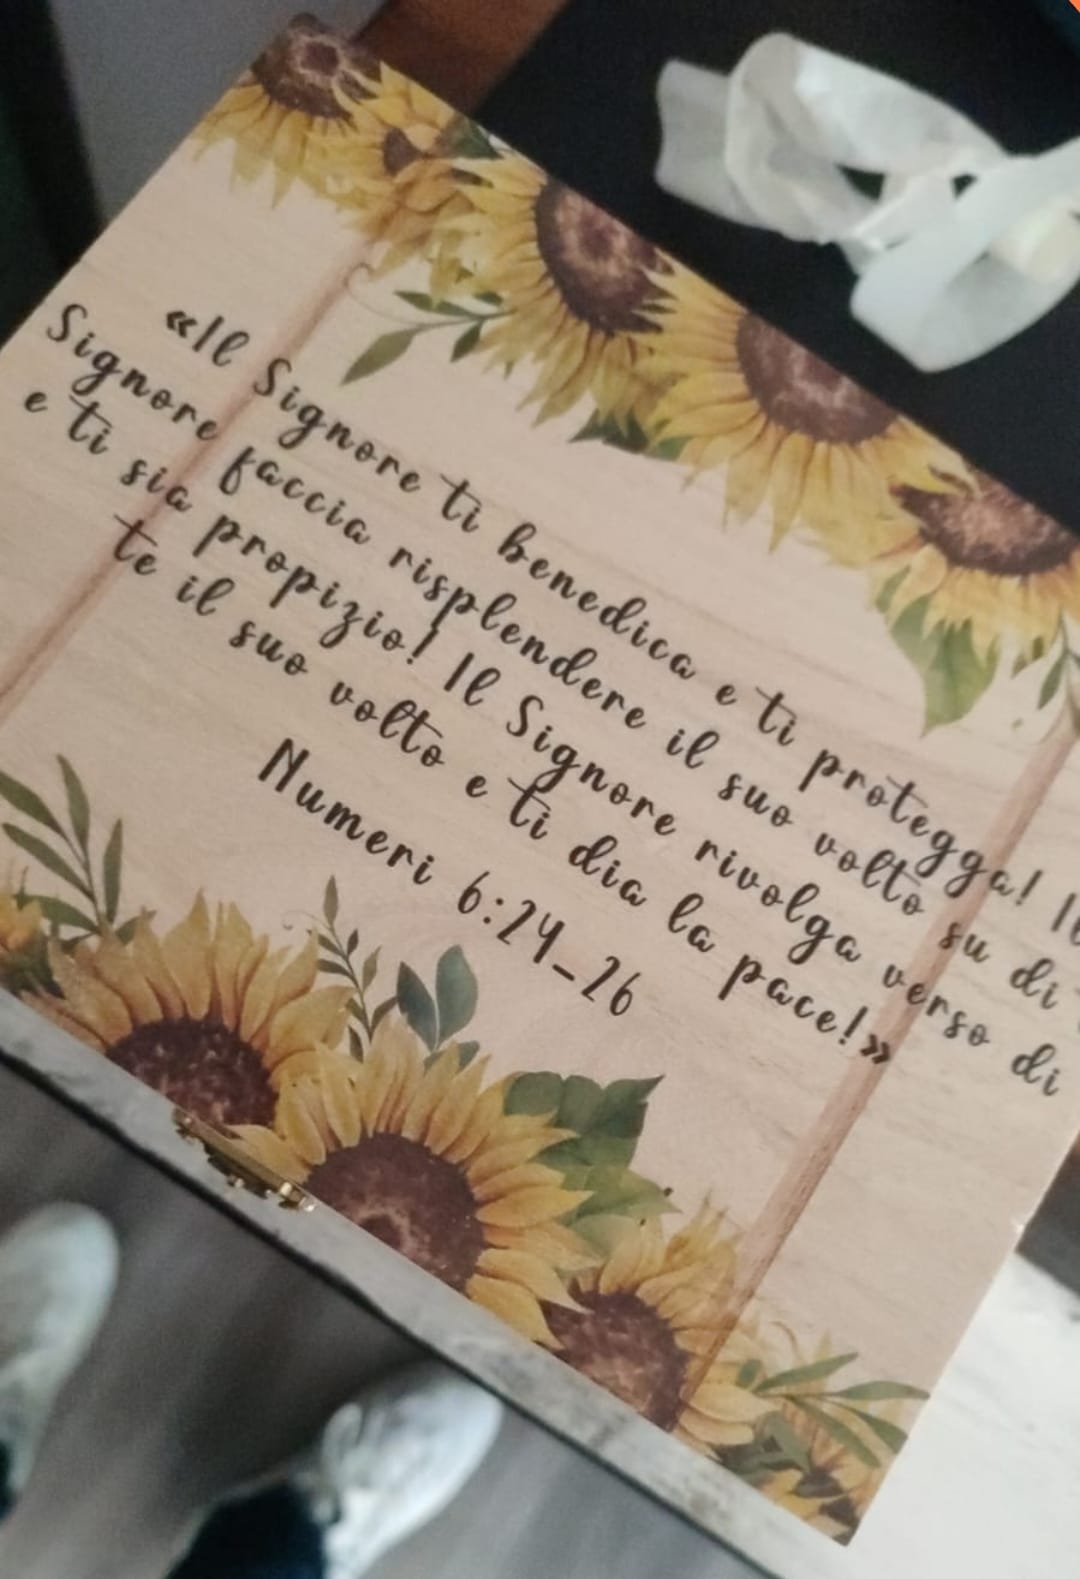 «Il Signore ti benedica e ti protegga! Il
Signore faccia risplendere il suo volto su di
e ti sia propizio! Il Signore rivolga verso di
te il suo volto e ti dia la pace!»
Numeri 6:24_26